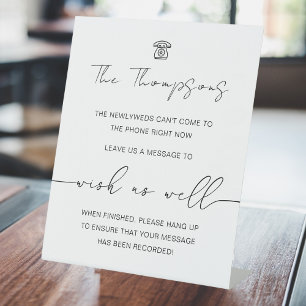 The Thompsons
THE NEWLYWEDS CAN'T COME TO
THE PHONE RIGHT NOW
LEAVE US A MESSAGE TO
wish us well
WHEN FINISHED, PLEASE HANG UP
TO ENSURE THAT YOUR MESSAGE
HAS BEEN RECORDED!